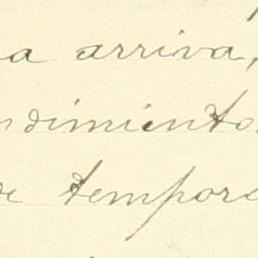 a arriva,
ndimiento.
de tempora